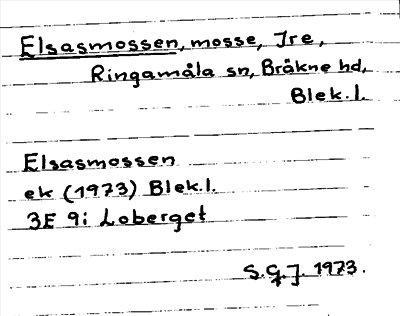 Elsasmossen, mosse, Ire,
Ringamåla sn, Bräkne hd,
Blek.l.
Elsasmossen
ek (1973) Blek.l.
3E 9i Loberget
S.G.J. 1973.